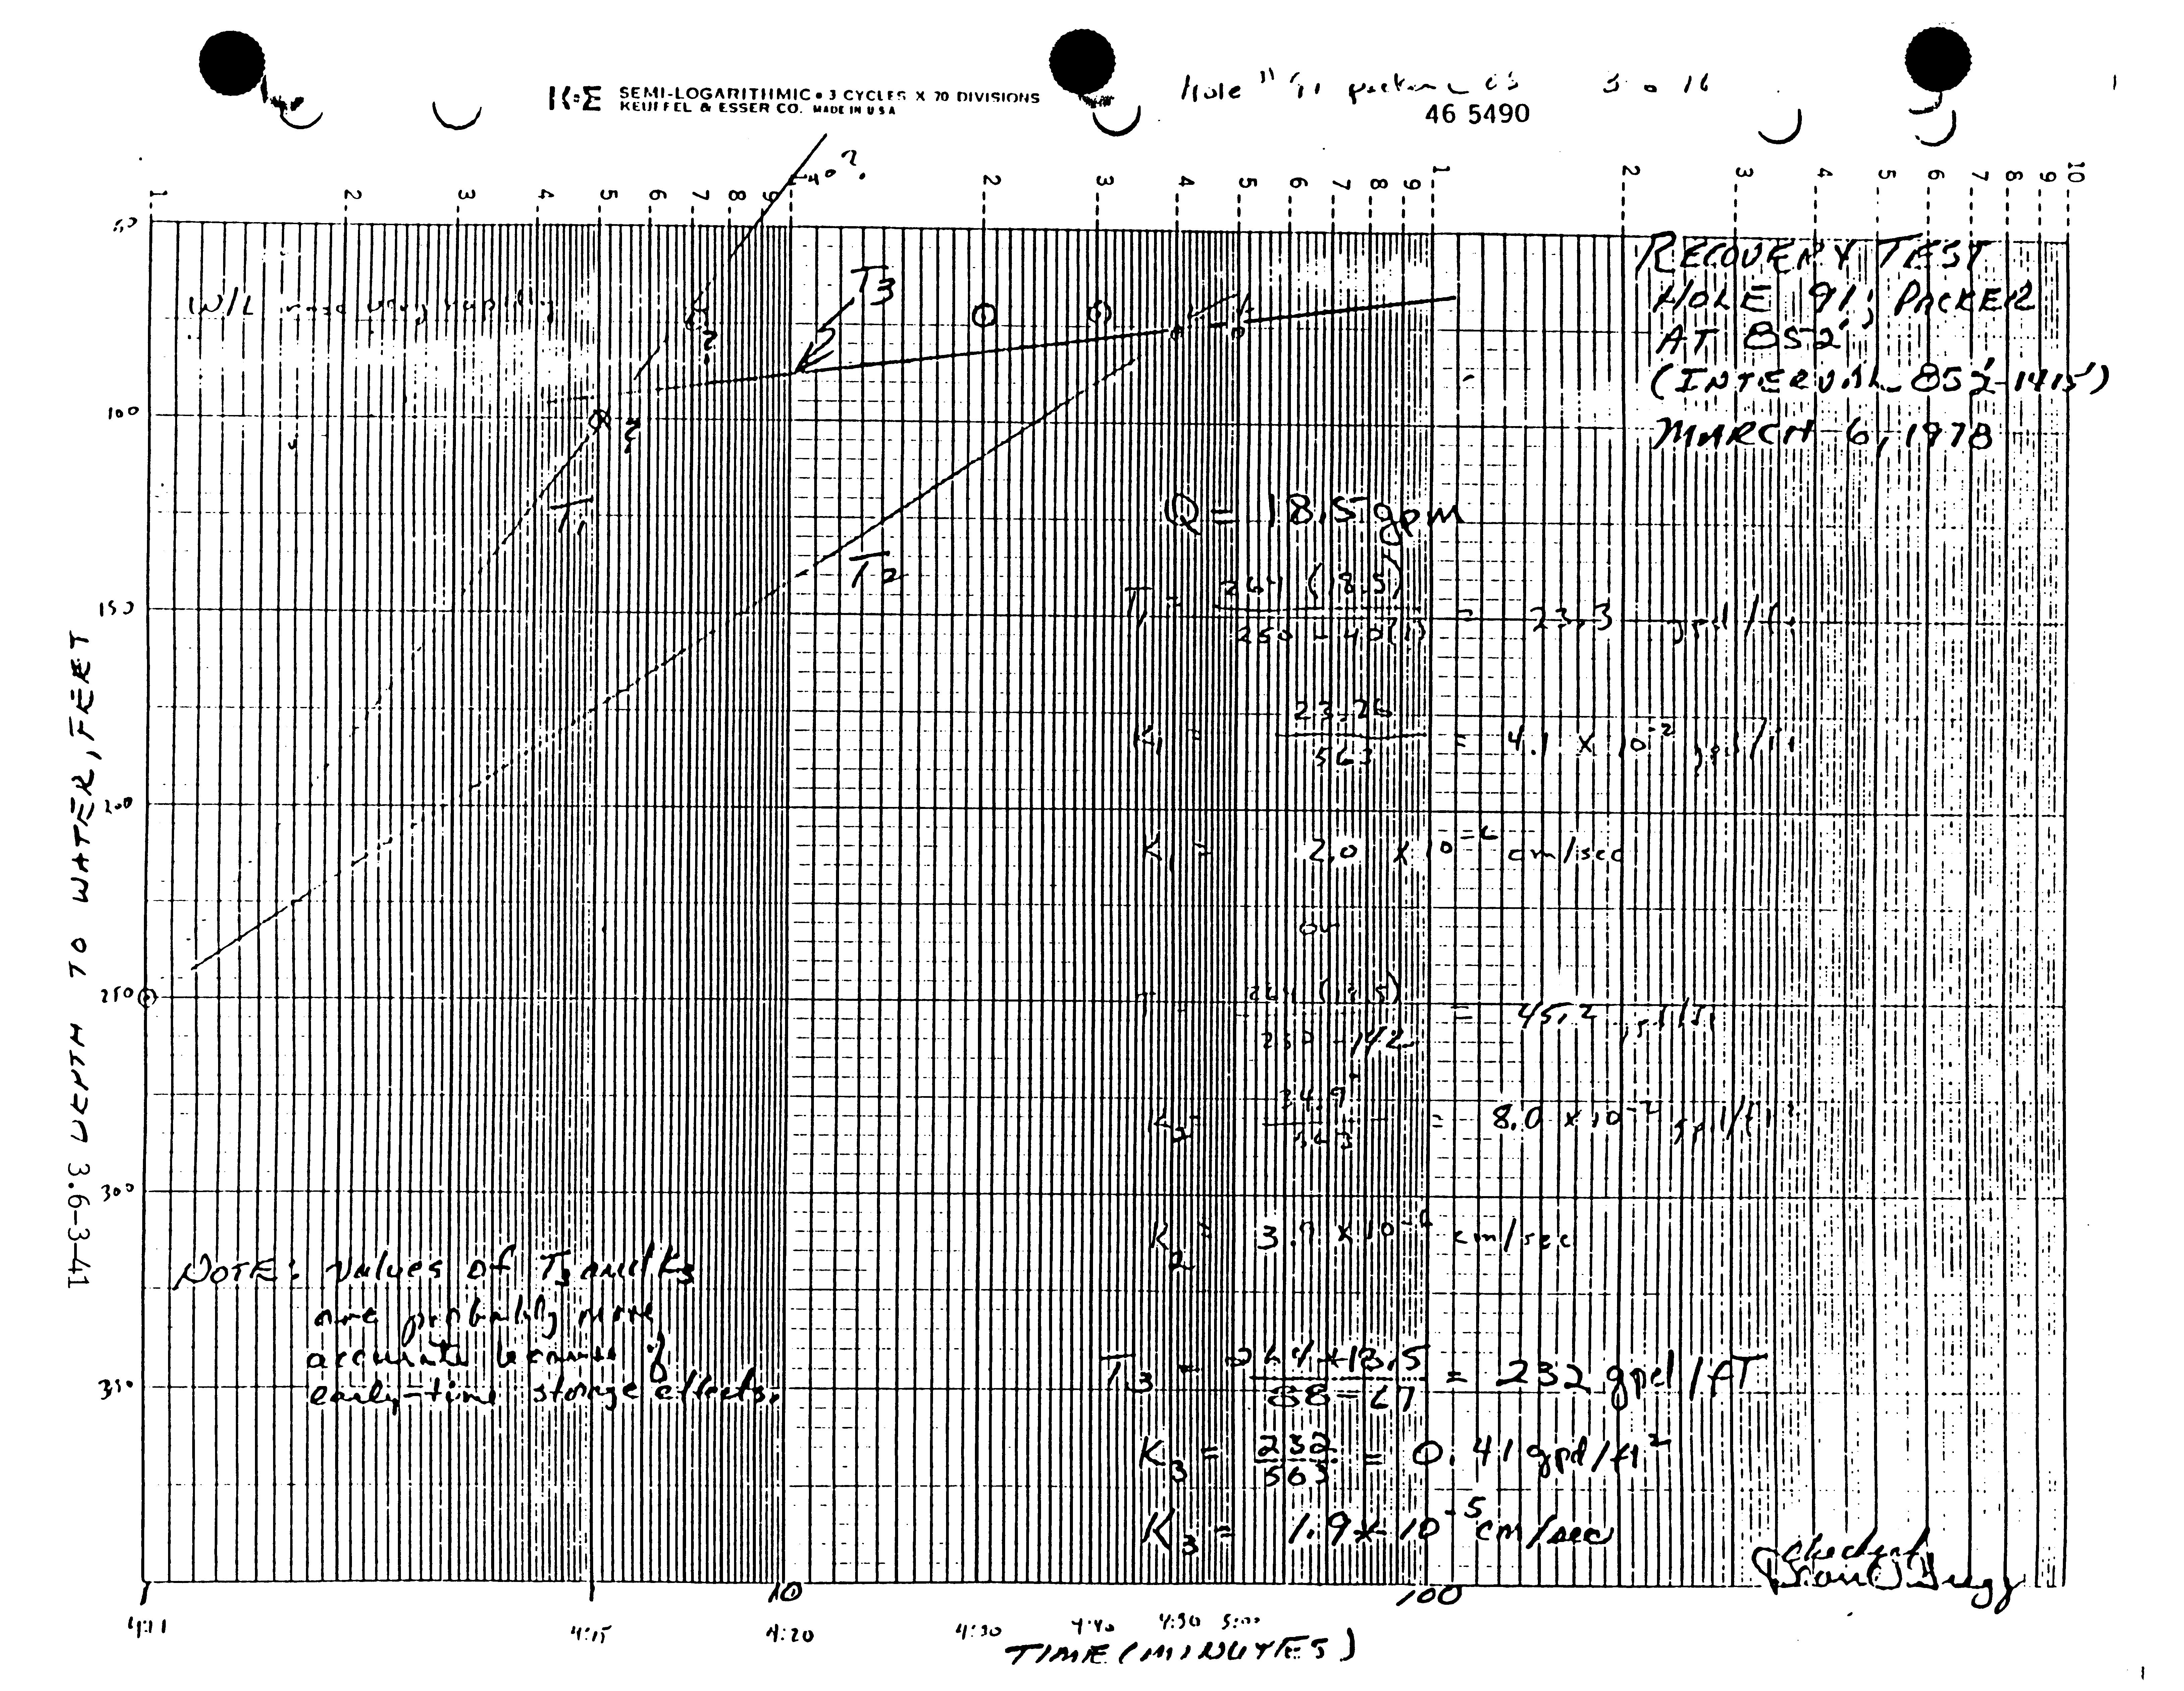 K+E SEMI-LOGARITHMIC • 3 CYCLES X 70 DIVISIONS
KEUFFEL & ESSER CO. MADE IN USA
Hole 91 packer
46 5490
40?
1 2 3 4 5 6 7 8 9 1 2 3 4 5 6 7 8 9 1 2 3 4 5 6 7 8 9 10
50
W/L rose very rapidly
T3
?
RECOVERY TEST
HOLE 91; PACKER
AT 852'
(INTERVAL 852'-1415')
MARCH 6, 1978
100
?
T1
Q = 18.5 gpm
T2
150
T1 = 264 (18.5) / 250 - 40(?) = 23.3 gpd/ft
K1 = 23.26 / 563 = 4.1 x 10-2 gpd/ft2
200
K1 = 2.0 x 10-6 cm/sec
or
250
264 (18.5) / 250 - 142 = 45.2 gpd/ft
K2 = / 563 = 8.0 x 10-2 gpd/ft2
300
K2 = 3. x 10-6 cm/sec
NOTE: Values of T3 and K3
are probably more
accurate because of
early-time storage effects.
T3 = 264 x 18.5 / 88 - 67 = 232 gpd/fT
K3 = 232 / 563 = 0.41 gpd/ft2
K3 = 1.9 x 10-5 cm/sec
checked
1 10 100
4:11 4:15 4:20 4:30 4:40 4:50 5:00
TIME (MINUTES)
DEPTH TO WATER, FEET
3.6-3-41